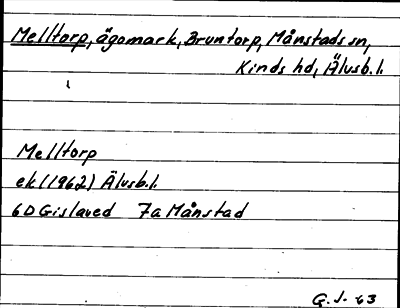 Melltorp, ägomark, Bruntorp, Månstads sn,
Kinds hd, Älvsb.l.
Melltorp
ek (1962) Älvsb.l.
6D Gislaved 7a Månstad
G.J. 63